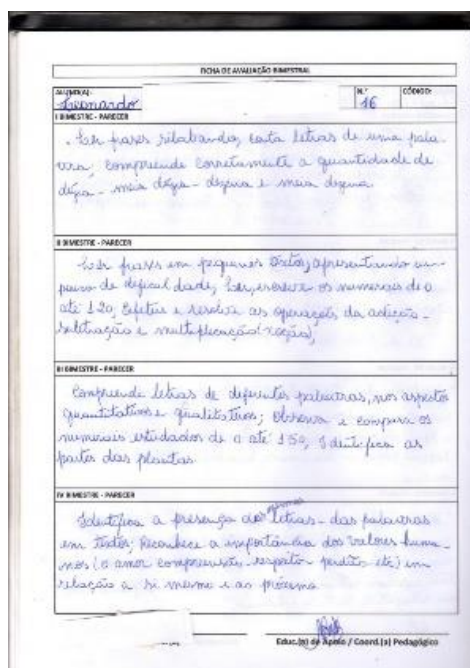 FICHA DE AVALIAÇÃO BIMESTRAL
ALUNO(A): Leonardo N.º 16 CÓDIGO:
I BIMESTRE - PARECER
. Ler frases silabando, conta letras de uma pala-
vra, compreende corretamente a quantidade de
dúzia - meia dúzia - dezena e meia dezena.
II BIMESTRE - PARECER
Ler frases em pequenos textos, apresentando um
pouco de dificuldade, Ler, escreve os numerais de 0
até 120, Efetua e resolve as operações da adição -
subtração e multiplicação (noção),
III BIMESTRE - PARECER
Compreende letras de diferentes palavras, nos aspectos
quantitativos e qualitativos; Observa e compara os
numerais estudados de 0 até 150, Identifica as
partes das plantas.
IV BIMESTRE - PARECER
Identifica a presença das letras - das palavras
em textos; Reconhece a importância dos valores huma-
nos (o amor compreensão - respeito - perdão etc) em
relação a si mesmo e ao próximo
Educ.(a) de Apoio / Coord.(a) Pedagógico